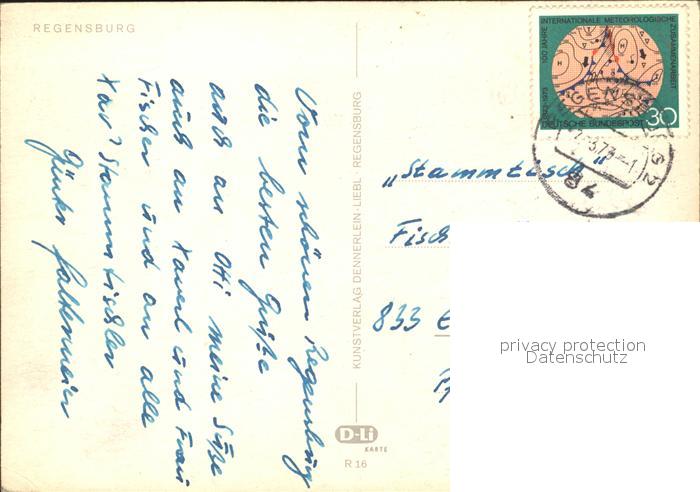 REGENSBURG
Vom schönen Regensburg
die besten Grüße
auch an Otti meine Süße
auch an Xaverl und Frau
Fischer und an alle
Stammtischler
Günter
KUNSTVERLAG DENNERLEIN-LIEBL · REGENSBURG
D-Li
KARTE
R 16
100 JAHRE INTERNATIONALE METEOROLOGISCHE ZUSAMMENARBEIT
DEUTSCHE BUNDESPOST 30
84
„Stammtisch"
Fisch
833 E
privacy protection
Datenschutz